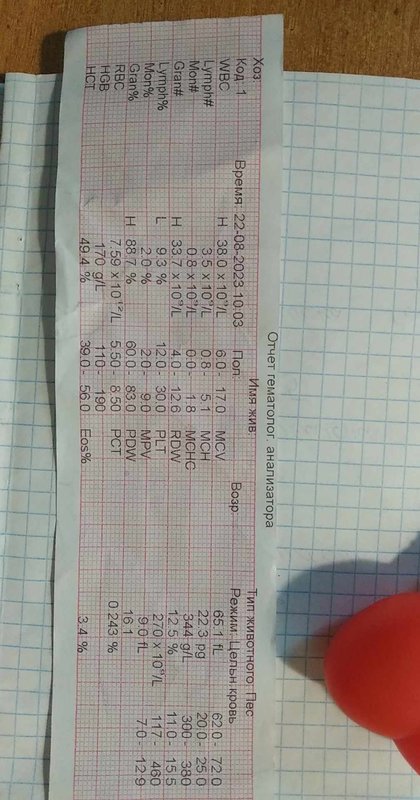 Отчет гематолог. анализатора
Хоз: Имя жив: Тип животного: Пес
Код: 1 Время: 22-08-2023 10:03 Пол: Возр Режим: Цельн.кровь
WBC H 38.0 x 10⁹/L 6.0 - 17.0 MCV 65.1 fL 62.0 - 72.0
Lymph# 3.5 x 10⁹/L 0.8 - 5.1 MCH 22.3 pg 20.0 - 25.0
Mon# 0.8 x 10⁹/L 0.0 - 1.8 MCHC 344 g/L 300 - 380
Gran# H 33.7 x 10⁹/L 4.0 - 12.6 RDW 12.5 % 11.0 - 15.5
Lymph% L 9.3 % 12.0 - 30.0 PLT 270 x 10⁹/L 117 - 460
Mon% 2.0 % 2.0 - 9.0 MPV 9.0 fL 7.0 - 12.9
Gran% H 88.7 % 60.0 - 83.0 PDW 16.1
RBC 7.59 x 10¹²/L 5.50 - 8.50 PCT 0.243 %
HGB 170 g/L 110 - 190
HCT 49.4 % 39.0 - 56.0 Eos% 3.4 %